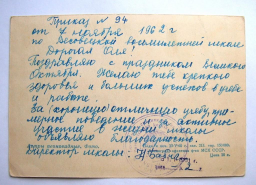 Приказ N 94
от 7 ноября 1962 г
по Лесовской восьмилетней школе
Дорогая Оля!
Поздравляю с праздником Великого
Октября. Желаю тебе крепкого
здоровья и больших успехов в учебе
и работе.
За хорошую отличную учебу, при-
мерное поведение и за активное
участие в жизни школы
объявляю благодарность.
директор школы: